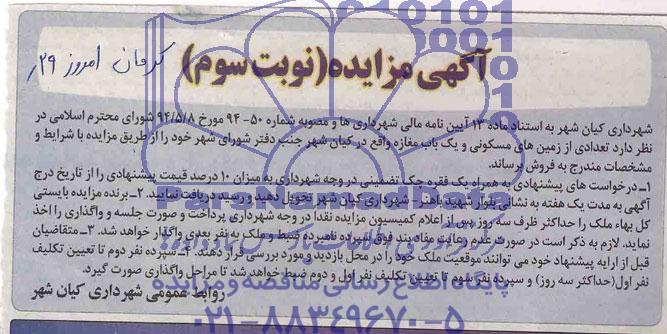 آگهی مزایده(نوبت سوم)
کرمان امروز ۲۹ر
شهرداری کیان شهر به استناد ماده ۱۳ آیین نامه مالی شهرداری ها و مصوبه شماره ۵۰-۹۴ مورخ ۹۴/۵/۸ شورای محترم اسلامی در
نظر دارد تعدادی از زمین های مسکونی و یک باب مغازه واقع در کیان شهر جنب دفتر شورای شهر خود را از طریق مزایده با شرایط و
مشخصات مندرج به فروش برساند.
۱-درخواست های پیشنهادی به همراه یک فقره چک تضمینی در وجه شهرداری به میزان ۱۰ درصد قیمت پیشنهادی را از تاریخ درج
آگهی به مدت یک هفته به نشانی بلوار شهید باهنر- شهرداری کیان شهر تحویل دهید و رسید دریافت نمایید. ۲-برنده مزایده بایستی
کل بهاء ملک را حداکثر ظرف سه روز پس از اعلام کمیسیون مزایده نقدا در وجه شهرداری پرداخت و صورت جلسه و واگذاری را اخذ
نماید. لازم به ذکر است در صورت عدم رعایت مفاد بند فوق سپرده نامبرده ضبط و ملک به نفر بعدی واگذار خواهد شد. ۳-متقاضیان
قبل از ارایه پیشنهاد خود می توانند موقعیت ملک خود را در محل بازدید و مورد بررسی قرار دهند. ۴-سپرده نفر دوم تا تعیین تکلیف
نفر اول(حداکثر سه روز) و سپرده نفر سوم تا تعیین تکلیف نفر اول و دوم ضبط خواهد شد تا مراحل واگذاری صورت گیرد.
روابط عمومی شهرداری کیان شهر
پایگاه اطلاع رسانی مناقصه و مزایده
۰۲۱-۸۸۳۴۹۶۷۰-۵